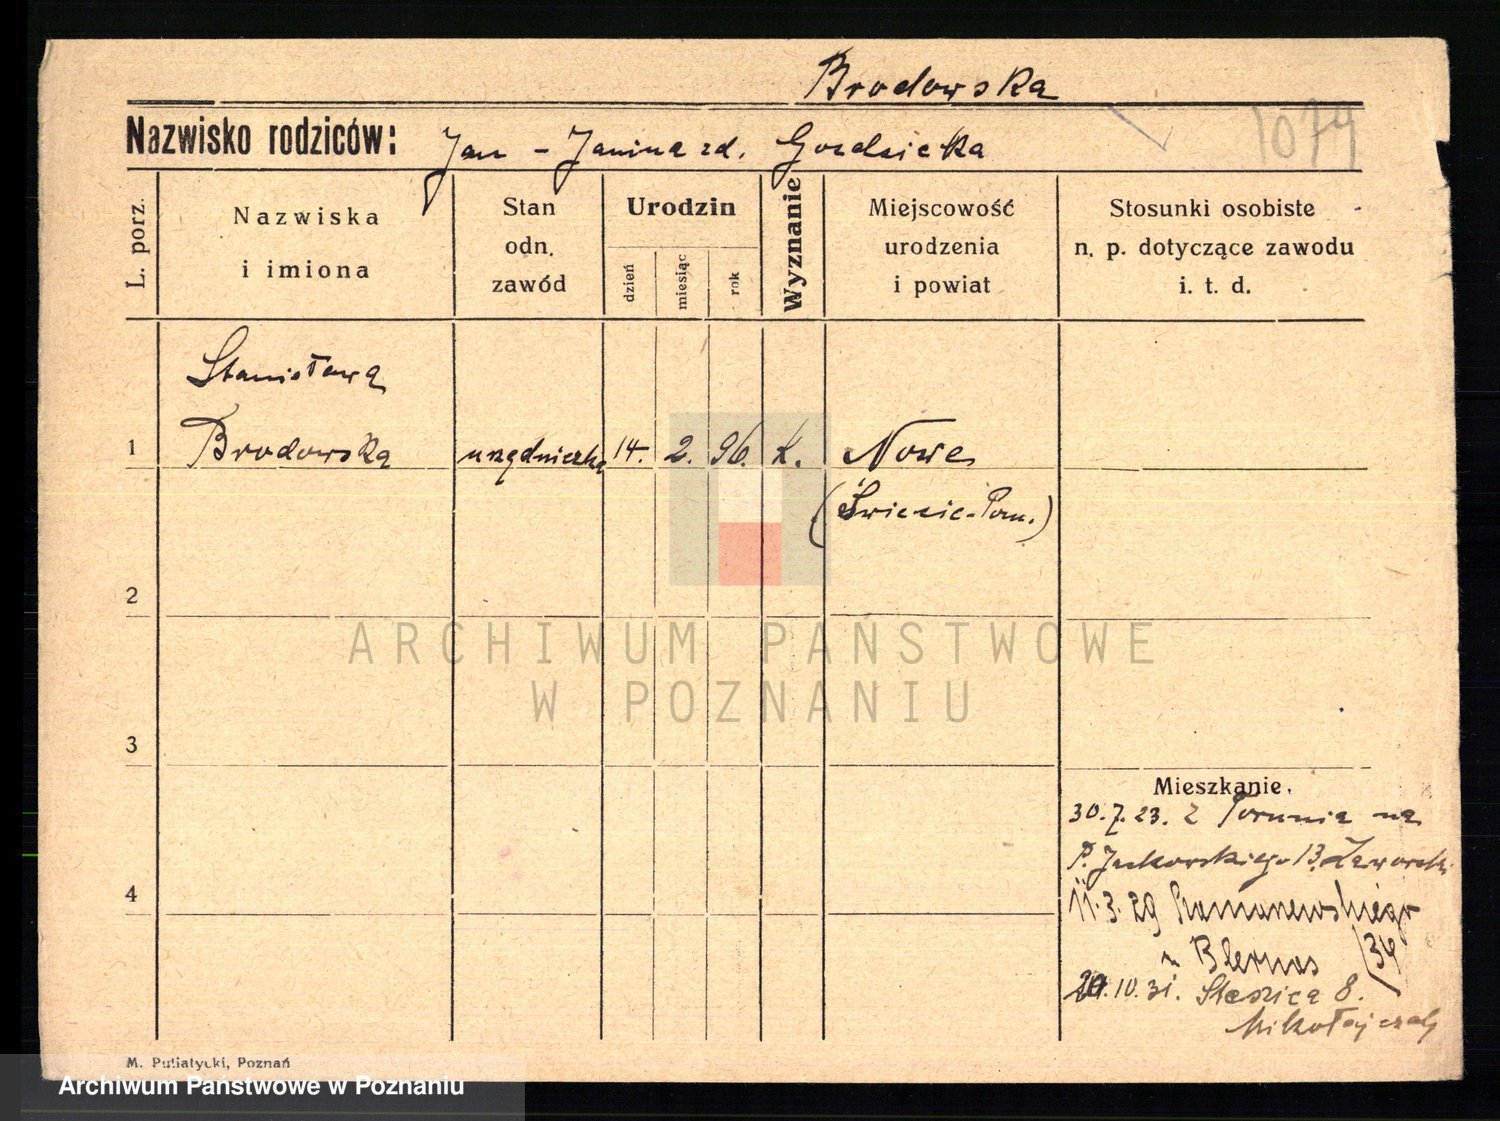 Brodowska
Nazwisko rodziców: Jan - Janina zd. Gozdzicka
1079
L. porz.
Nazwiska
i imiona
Stan
odn.
zawód
Urodzin
dzień
miesiąc
rok
Wyznanie
Miejscowość
urodzenia
i powiat
Stosunki osobiste
n. p. dotyczące zawodu
i. t. d.
Stanisława
1 Brodowska urzędniczka 14. 2. 96. k. Nowe
(Świecie-Pom.)
2
ARCHIWUM PAŃSTWOWE
W POZNANIU
3
Mieszkanie.
30.7.23. z Torunia na
P. Jackowskiego 13.
4
11.3.29
34
20.10.31. Staszica 8.
Mikołajczak
M. Putiatycki, Poznań
Archiwum Państwowe w Poznaniu